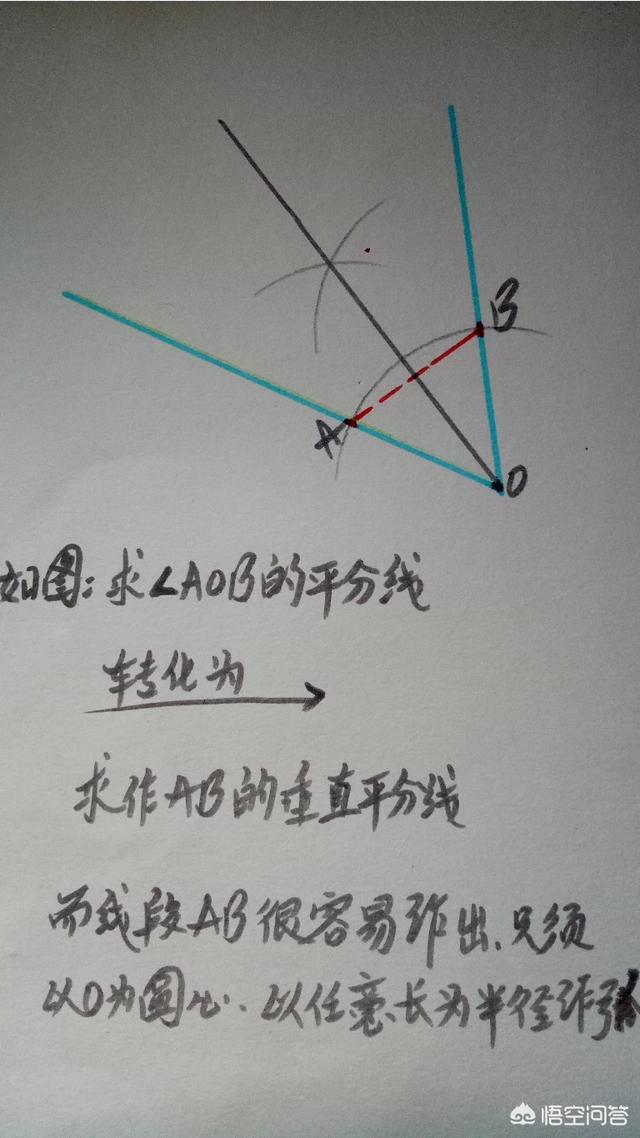 B
A
O
如图:求∠AOB的平分线
转化为
求作AB的垂直平分线
而线段AB很容易作出.只须
以O为圆心.以任意长为半径作弧
悟空问答